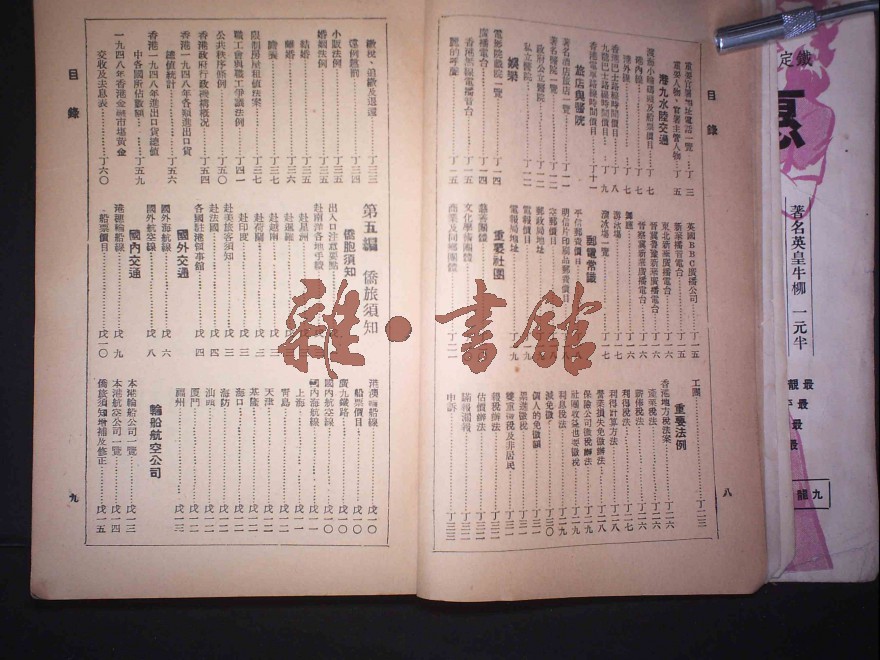 目錄
重要官署地址電話一覽……丁三
重要人物、官署主管人物……丁五
港九水陸交通
渡海小輪碼頭及船票價目……丁七
港內線……丁七
港外線……丁七
香港巴士路線時間價目……丁八
九龍巴士路線時間價目……丁九
香港電車路線時間價目……丁十
旅店與醫院
著名酒店旅店一覽……丁十一
著名醫院一覽……丁一二
政府公立醫院
私立醫院……丁一二
娛樂
電影院戲院一覽……丁一四
廣播電台……丁一四
香港無線電播音台……丁一五
麗的呼聲……丁一五
英國BBC廣播公司……丁一五
新華播音電台……丁一五
東北新華廣播電台……丁一六
晉冀魯豫新華廣播電台……丁一六
晉察冀新華廣播電台……丁一六
舞廳……丁一六
游泳場……丁一七
溜冰場一覽……丁一七
郵電常識
平信郵費價目
明信片印刷品郵費價目……丁一八
空郵價目
郵政局地址……丁一九
電報價目
電報局地址……丁一九
重要社團
慈善團體
文化學術團體
商業及同鄉團體……丁二一
工團……丁二三
重要法例
香港地方稅法案……丁二六
產業稅法……丁二六
薪俸稅法……丁二六
利得稅法……丁二七
利得計算方法……丁二八
營業損失免徵辦法……丁二八
保險公司徵稅辦法……丁二九
社團收益也要徵稅……丁二九
利息稅法……丁二九
減免徵……丁三〇
個人的免徵額……丁三一
累進徵稅……丁三一
雙重徵稅及非居民……丁三一
報稅辦法……丁三二
估價辦法……丁三二
瞞報漏報……丁三二
申訴……丁三三
八
目錄
繳稅、追繳及退還……丁三三
違例懲罰……丁三四
小販法例……丁三五
婚姻法例……丁三五
結婚……丁三五
離婚……丁三六
贍養……丁三七
限制房屋租值法案……丁三七
職工會與職工爭議法例……丁四一
公共秩序條例……丁五〇
香港政府行政機構概況……丁五四
香港一九四八年各類進出口貨
總值統計……丁五六
香港一九四八年進出口貨總值
中各國所佔數額……丁五九
一九四八年香港金融市場黃金
交收及去息表……丁六〇
第五編 僑旅須知
僑胞須知
出入口注意要點
赴南洋各地手續
赴星洲……戊三
赴暹羅……戊三
赴越南……戊三
赴荷屬……戊三
赴印度……戊三
赴美旅客須知……戊三
赴法國……戊四
各國駐港領事館……戊四
國外交通
國外海航線……戊六
國外航空線……戊八
國內交通
港穗輪船線……戊九
船票價目……戊一〇
港澳輪船線……戊一〇
船票價目……戊一〇
廣九鐵路……戊一〇
國內航空線……戊一〇
國內海航線……戊一一
上海……戊一一
青島……戊一二
天津……戊一二
基隆……戊一二
海口……戊一二
海防……戊一二
汕頭……戊一二
廈門……戊一二
福州……戊一三
輪船航空公司
本港輪船公司一覽……戊一三
本港航空公司一覽……戊一四
僑旅須知增補及修正……戊一五
九
著名英皇牛柳 一元半
九龍
雜·書館